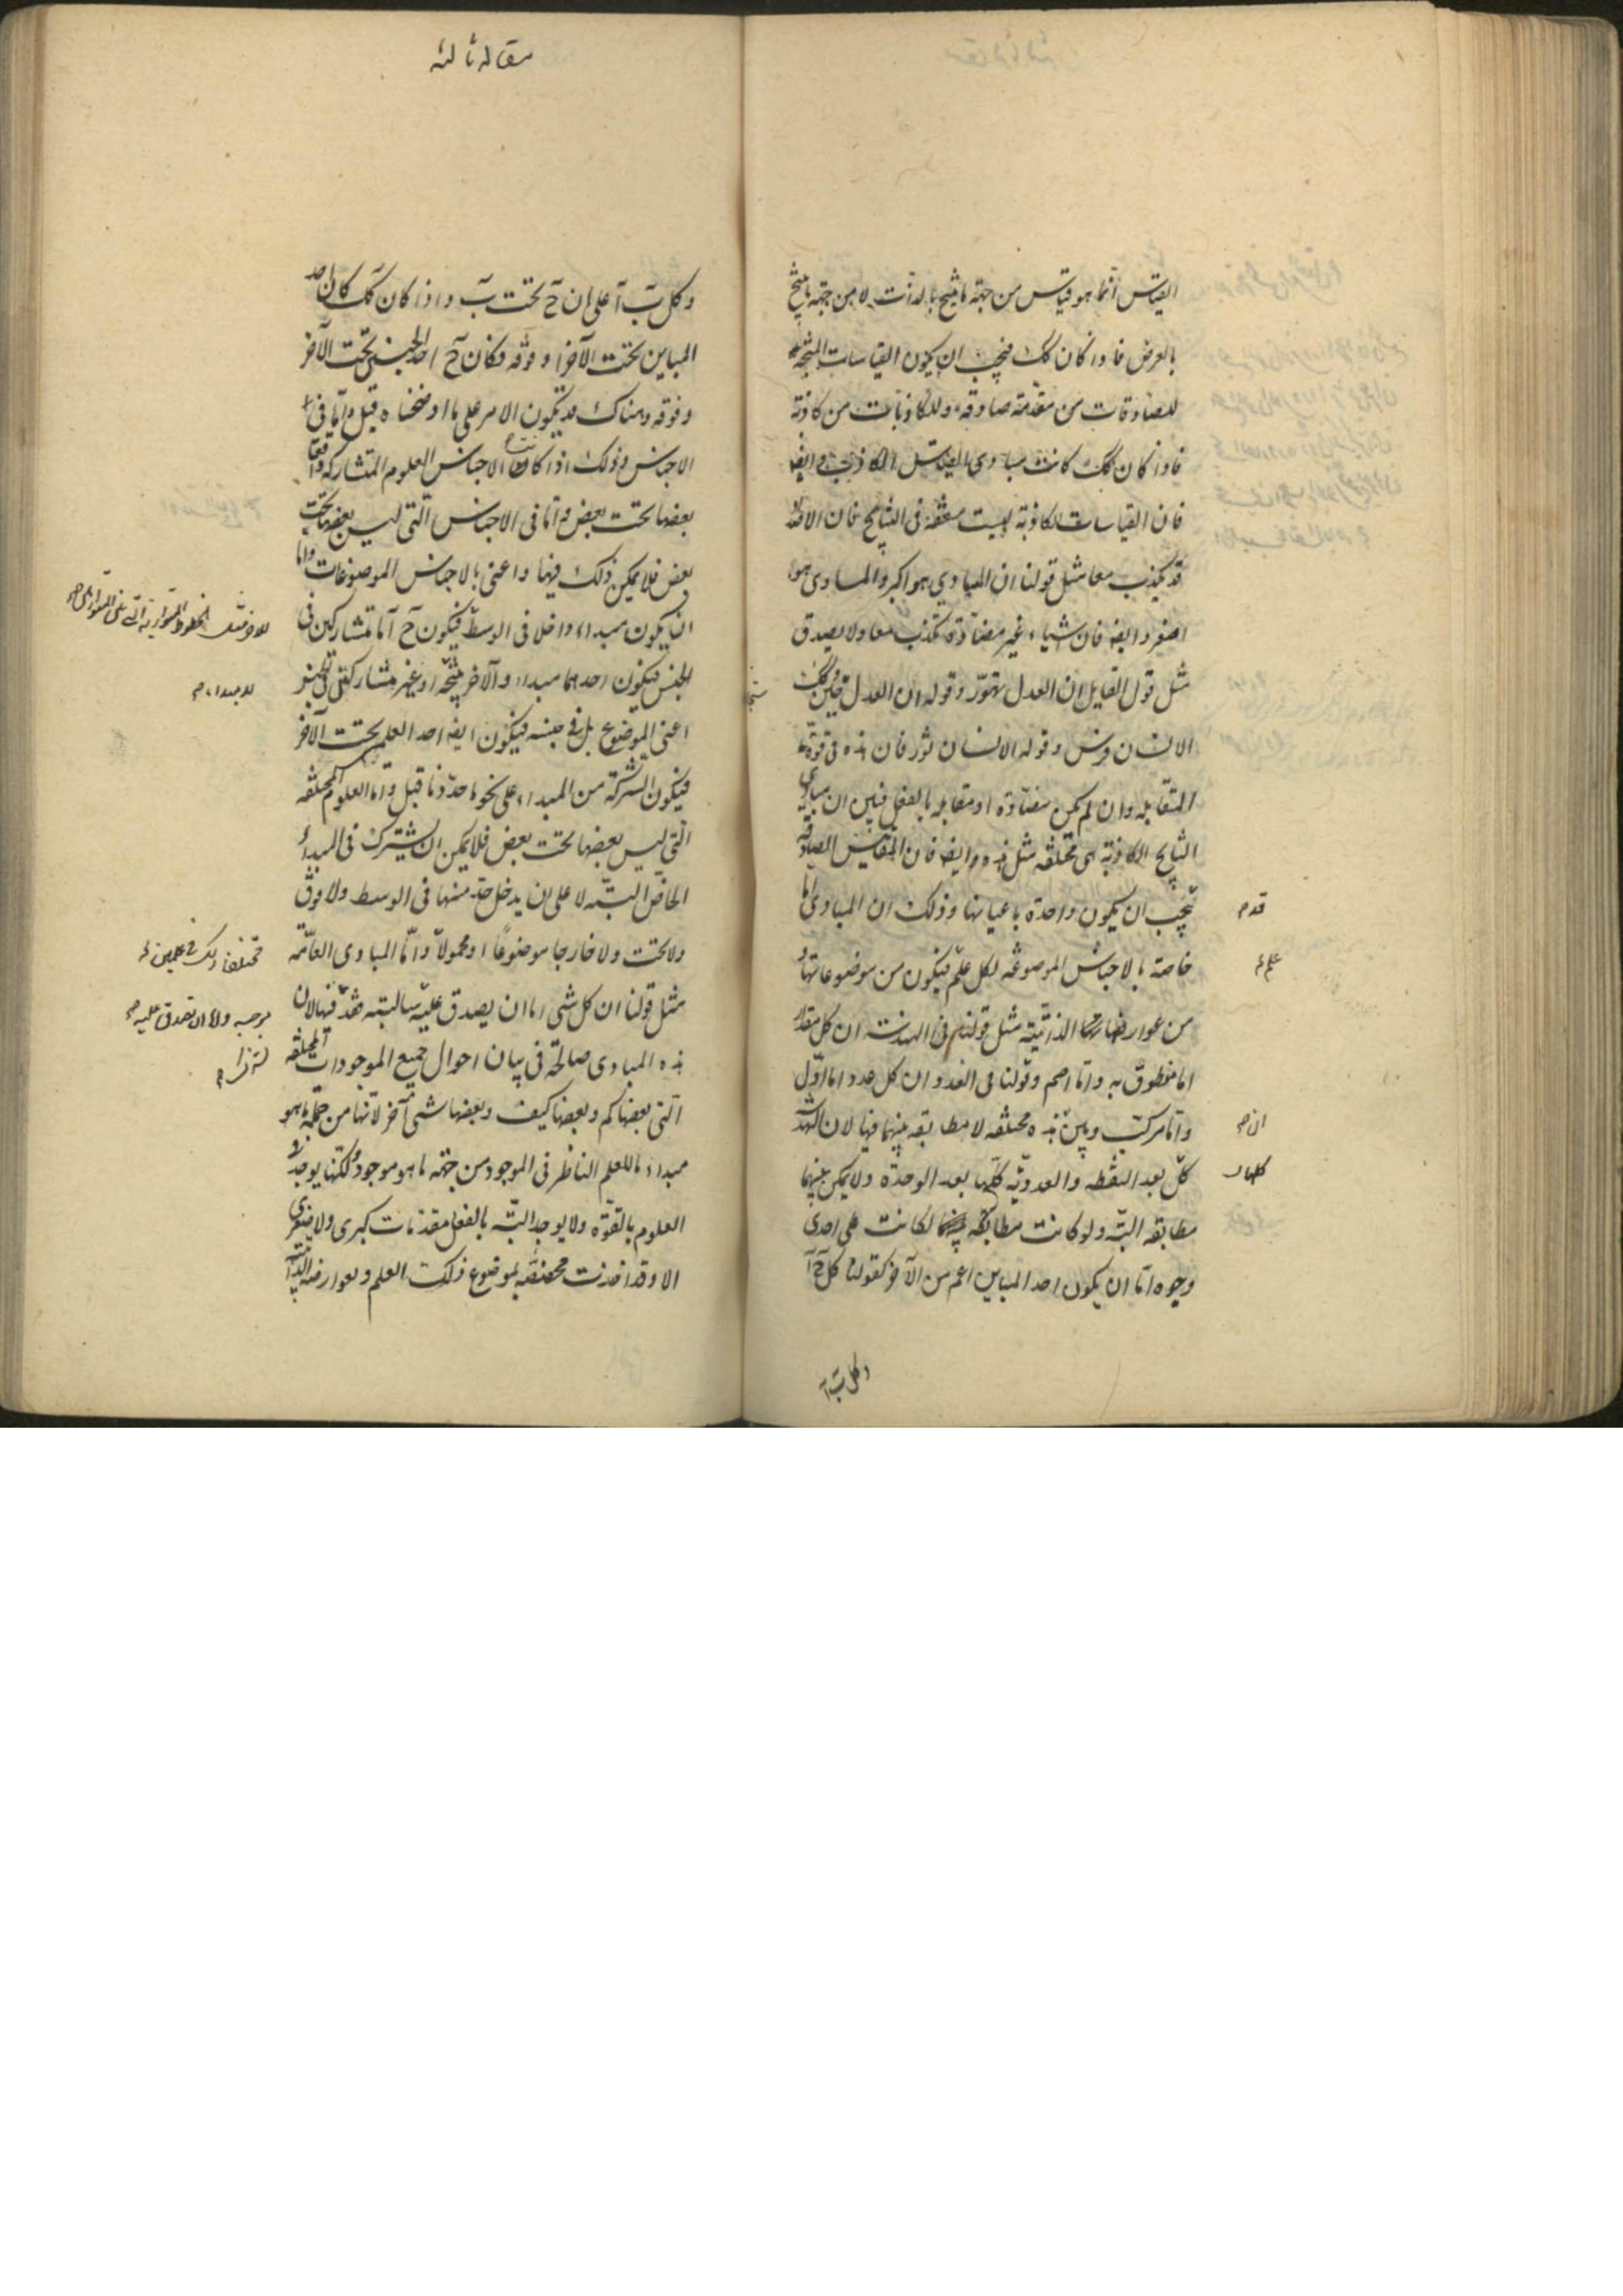 القياس انما هو قياس من جهة ما ينتج بالذات لا من جهة ما ينتج
بالعرض فاذا كان كك فيجب ان يكون القياسات المنتجة
للصادقات من مقدمة صادقة وللكاذبات من كاذبة
فاذا كان كك كانت مبادى القياس الكاذب وايضا
فان القياسات الكاذبة ليست متفقة فى النتايج فان الاضداد
قد يكذب معا مثل قولنا ان المساوى هو اكبر والمساوى هو
اصغر وايضا فان اشياء غير متضادة تكذب معا ولا يصدق
مثل قول القايل ان العدل تهور وقوله ان العدل جبن وكك
الانسان فرس وقوله الانسان ثور فان هذه فى قوة
المتقابله وان لم يكن متضادة او متقابله بالفعل فبين ان مبادى
النتايج الكاذبة هى مختلفه مثل هذه وايضا فان المقاييس الصادقة
يجب ان يكون واحدة باعيانها وذلك ان المبادى اما
خاصة بالاجناس الموضوعه لكل علم فيكون من موضوعاتها و
من عوارضها الذاتية مثل قولنا فى الهندسه ان كل مقدار
اما منطوق به واما اصم وقولنا فى العدد ان كل عدد اما اول
واما مركب وبين هذه مختلفه لا مطابقه بينهما فيها لان الهندسية
كل بعد النقطه والعددية كلها بعد الوحدة ولا يمكن بينهما
مطابقه البتة ولو كانت مطابقة لكانت على احدى
وجوه اما ان يكون احد المباين اعم من الآخر كقولنا كل ج آ
قد م
علم
ان م
كلها
وكل ب آ
مقاله ثالثه
وكل ب آ على ان ج تحت ب واذا كان كك كان احد
المباين تحت الآخر او فوقه فكان ج احد الجنسين تحت الآخر
وفوقه وهناك قد يكون الامر على ما اوضحناه قبل واما فى
الاجناس وذلك اذا كانت الاجناس العلوم المتشاركة واقعا
بعضها تحت بعض واما فى الاجناس التى ليس بعضها تحت
بعض فلا يمكن ذلك فيها واعنى بالاجناس الموضوعات واما
ان يكون مبداء داخلا فى الوسط فيكون ج آ اما متشاركين فى
الجنس فيكون احدهما مبداء والآخر نتيجة او غير متشاركين فى الجنس
اعنى الموضوع بل فى جنسه فيكون ايضا احد العلم تحت الآخر
فيكون الشركة من المبداء على نحو ما حددنا قبل واما العلوم المختلفه
التى ليس بعضها تحت بعض فلا يمكن ان يشترك فى المبدأ
الخاص البته لا على ان يدخل حد منها فى الوسط ولا فوق
ولا تحت ولا خارجا موضوعا او محمولا واما المبادى العامة
مثل قولنا ان كل شى اما ان يصدق عليه سالبته فقد فيها لان
هذه المبادى صالحة فى بيان احوال جميع الموجودات المختلفه
التى بعضها كم وبعضها كيف وبعضها شى آخر لانها من جهة ما هو
مبداء للعلم الناظر فى الموجود من جهة ما هو موجود ولكنها يوجد فى
العلوم بالقوة ولا يوجد البتة بالفعل مقدمات كبرى ولا صغرى
الا وقد اخذت مختصة بموضوع ذلك العلم ولعوارضه الذاتية
موجبه واما ان يصدق عليه م